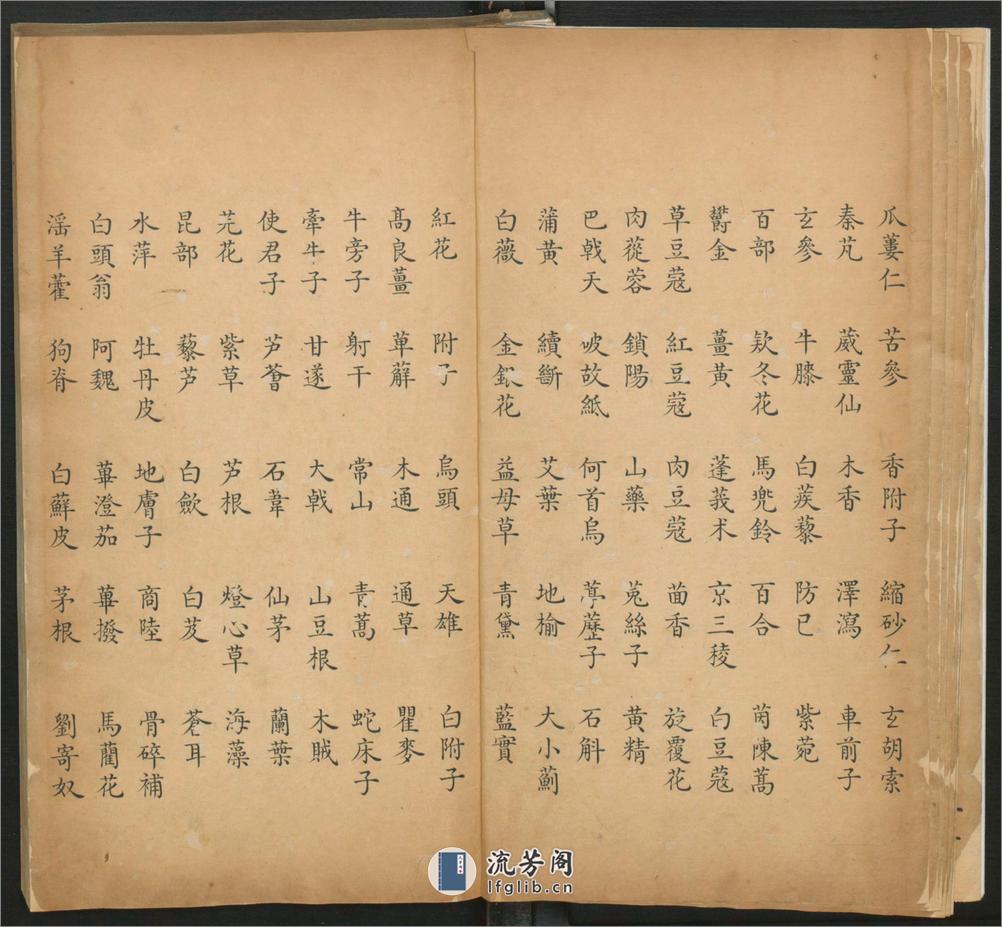 瓜蔞仁 苦參 香附子 縮砂仁 玄胡索
秦艽 葳靈仙 木香 澤瀉 車前子
玄參 牛膝 白蒺藜 防已 紫菀
百部 欵冬花 馬兜鈴 百合 茵陳蒿
鬱金 薑黃 蓬莪术 京三稜 白豆蔻
草豆蔻 紅豆蔻 肉豆蔻 茴香 旋覆花
肉蓯蓉 鎖陽 山藥 菟絲子 黃精
巴戟天 破故紙 何首烏 葶藶子 石斛
蒲黃 續斷 艾葉 地榆 大小薊
白薇 金銀花 益母草 青黛 藍實
紅花 附子 烏頭 天雄 白附子
高良薑 萆薢 木通 通草 瞿麥
牛旁子 射干 常山 青蒿 蛇床子
牽牛子 甘遂 大戟 山豆根 木賊
使君子 芦薈 石韋 仙茅 蘭葉
芫花 紫草 芦根 燈心草 海藻
昆部 藜芦 白歛 白芨 蒼耳
水萍 牡丹皮 地膚子 商陸 骨碎補
白頭翁 阿魏 蓽澄茄 蓽撥 馬藺花
滛羊藿 狗脊 白蘚皮 茅根 劉寄奴
流芳阁
lfglib.cn